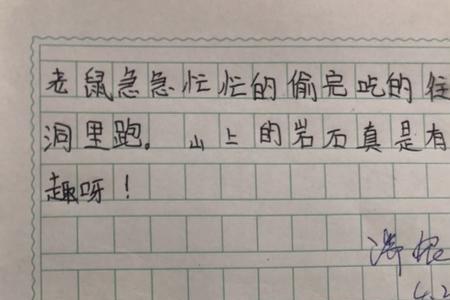 老鼠急急忙忙的偷完吃的往
洞里跑。山上的岩石真是有
趣呀！